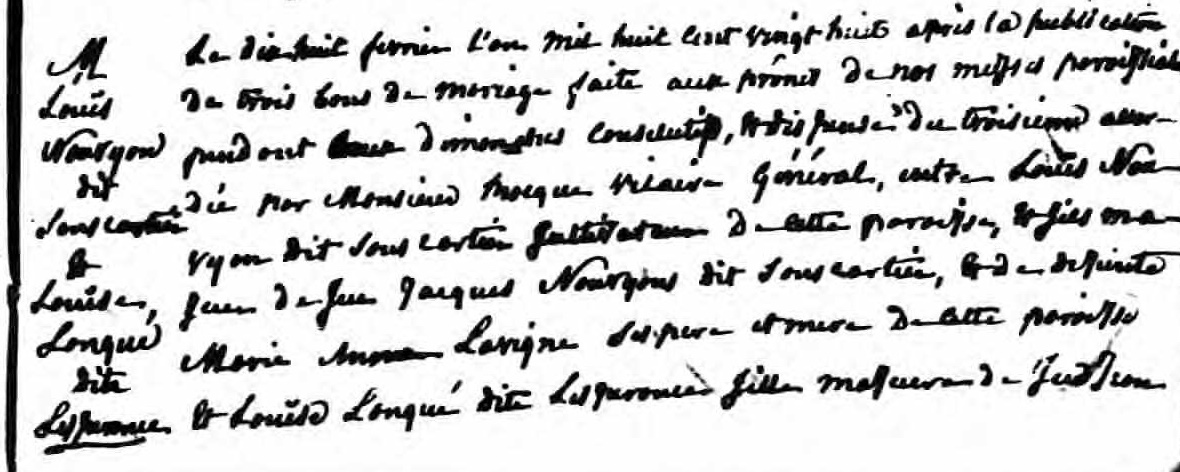 M
Louïs
Nouvyon
dit
Sanscartié
&
Louïse,
Lonqué
dite
Lesperance
Le dix huit fevrier l'an mil huit cent vingt huit après la publication
de trois bans de mariage faite aux prônes de nos messes paroissiales
pendant deux dimanches consécutifs, & dispense du troisieme accor-
dée par Monsieur vicaire Général, entre Louïs Nou-
vyon dit Sanscartié Cultivateur de cette paroisse, & fils ma-
jeur de feu Jacques Nouvyons dit Sanscartié, & de defunte
Marie Anne Lavigne ses pere et mere de cette paroisse
& Louïse Lonqué dite Lesperance fille majeure de Judscom